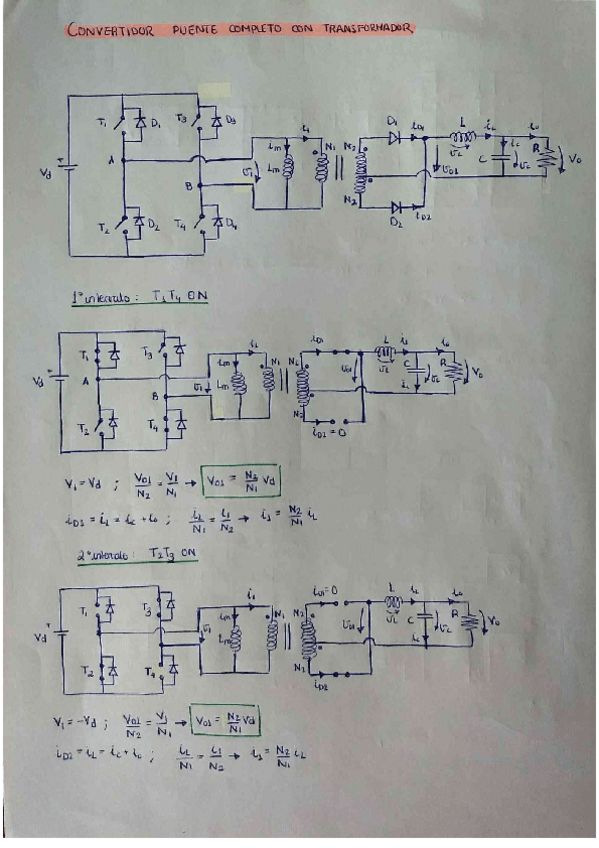 CONVERTIDOR PUENTE COMPLETO CON TRANSFORMADOR
T1 D1 T3 D3
Vd + A B
T2 D2 T4 D4
v1 im Lm i1 N1 N2 N2
D1 iD1 L iL io
vL vO1 C ic vc R Vo
D2 iD2
1º intervalo: T1 T4 ON
T1 T3
Vd + A B
T2 T4
v1 im Lm i1 N1 N2 N2
iD1 L io
vO1 vL C R Vo
iD2 = 0
V1 = Vd ; VO1/N2 = V1/N1 → VO1 = N2/N1 Vd
iD1 = iL = ic + io ; iL/N1 = i1/N2 → i1 = N2/N1 iL
2º intervalo: T2 T3 ON
T1 T3
Vd +
T2 T4
v1 im Lm i1 N1 N2 N2
iD1 = 0 L iL io
vO1 vL C ic R Vo
iD2
V1 = -Vd ; VO1/N2 = V1/N1 → VO1 = N2/N1 Vd
iD2 = iL = ic + io ; iL/N1 = i1/N2 → i1 = N2/N1 iL